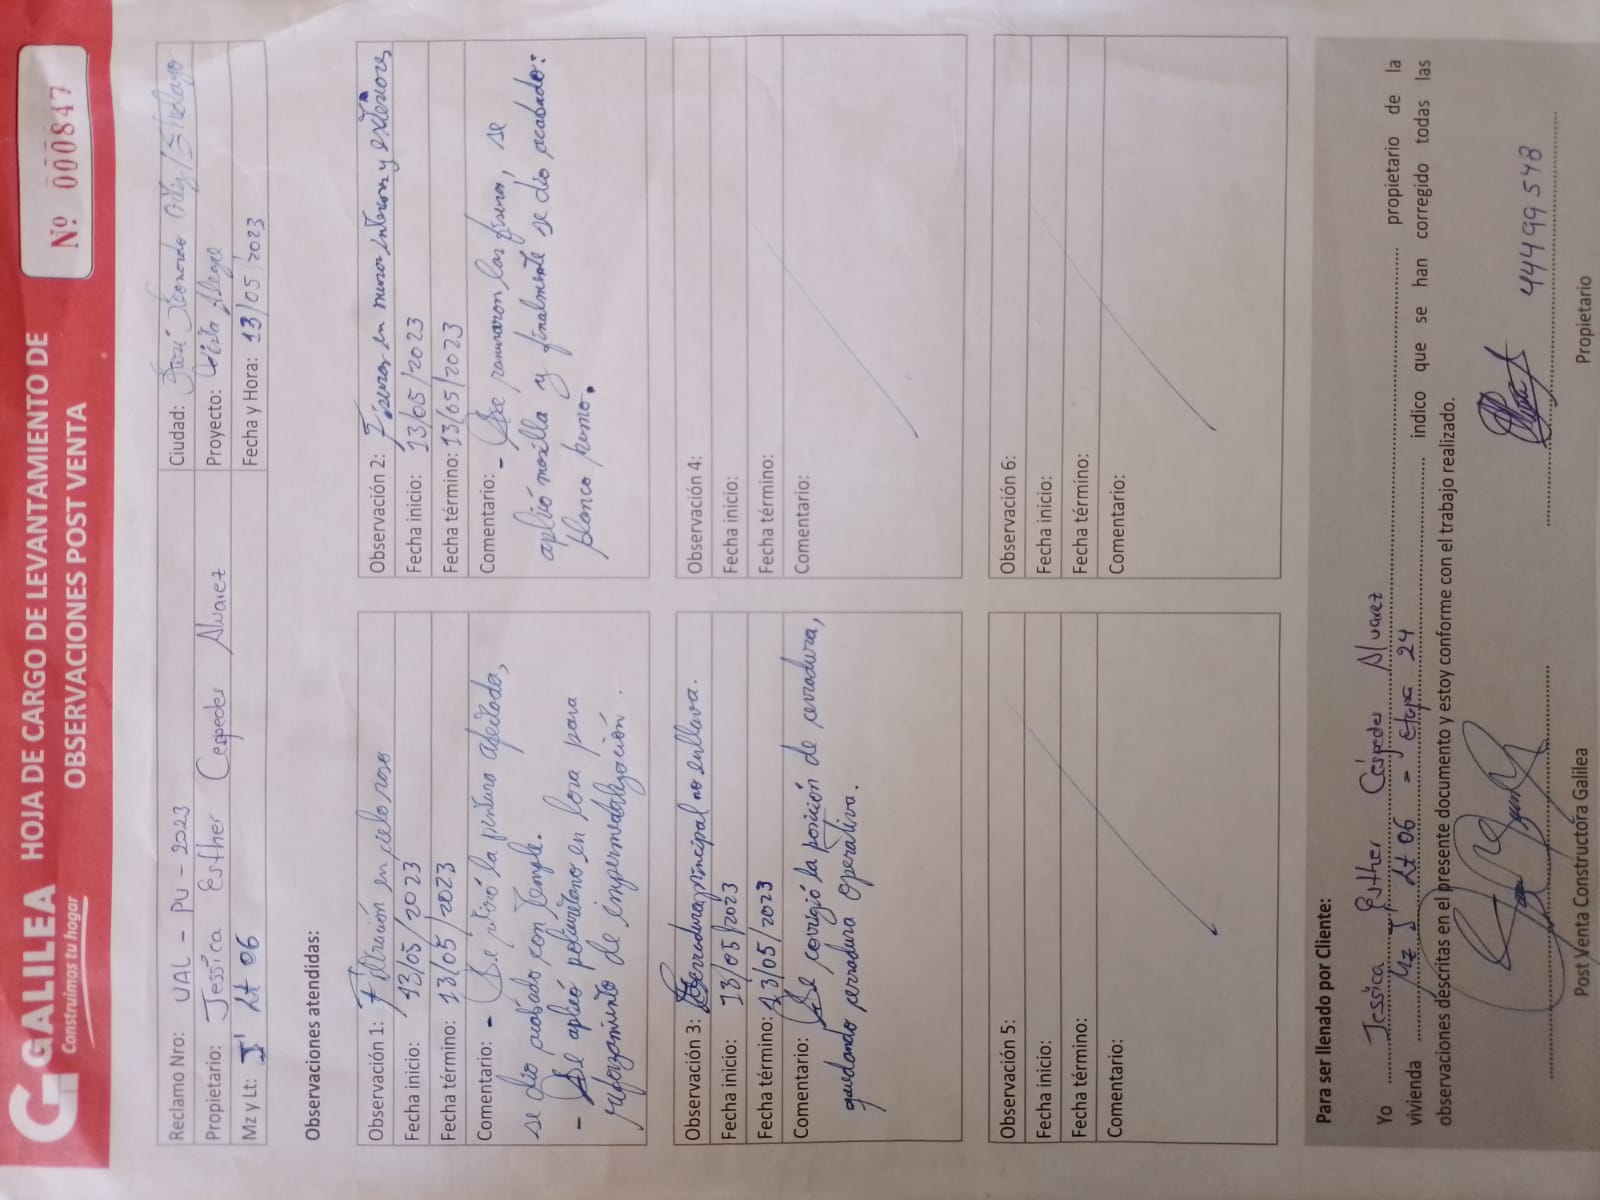 GALILEA
Construimos tu hogar
HOJA DE CARGO DE LEVANTAMIENTO DE
OBSERVACIONES POST VENTA
Nº 000847
Reclamo Nro: UAL - PU - 2023
Ciudad: José Leonardo Ortiz/Chiclayo
Propietario: Jessica Esther Cespedes Alvarez
Proyecto: Vista Alegre
Mz y Lt: I' Lt 06
Fecha y Hora: 13/05/2023
Observaciones atendidas:
Observación 1: Filtración en cielo raso
Fecha inicio: 13/05/2023
Fecha término: 13/05/2023
Comentario: - Se retiró la pintura afectada,
se dio acabado con temple.
- Se aplicó poliuretano en losa para
reforzamiento de impermeabilización.
Observación 2: Fisuras en muros interior y exteriores
Fecha inicio: 13/05/2023
Fecha término: 13/05/2023
Comentario: - Se ranuraron las fisuras, se
aplicó masilla y finalmente se dio acabado:
blanco humo.
Observación 3: Cerradura principal no enllava.
Fecha inicio: 13/05/2023
Fecha término: 13/05/2023
Comentario: Se corrigió la posición de cerradura,
quedando cerradura operativa.
Observación 4:
Fecha inicio:
Fecha término:
Comentario:
Observación 5:
Fecha inicio:
Fecha término:
Comentario:
Observación 6:
Fecha inicio:
Fecha término:
Comentario:
Para ser llenado por Cliente:
Yo Jessica Esther Céspedes Alvarez propietario de la
vivienda Mz I' Lt 06 - etapa 24 indico que se han corregido todas las
observaciones descritas en el presente documento y estoy conforme con el trabajo realizado.
44499548
Post Venta Constructora Galilea
Propietario